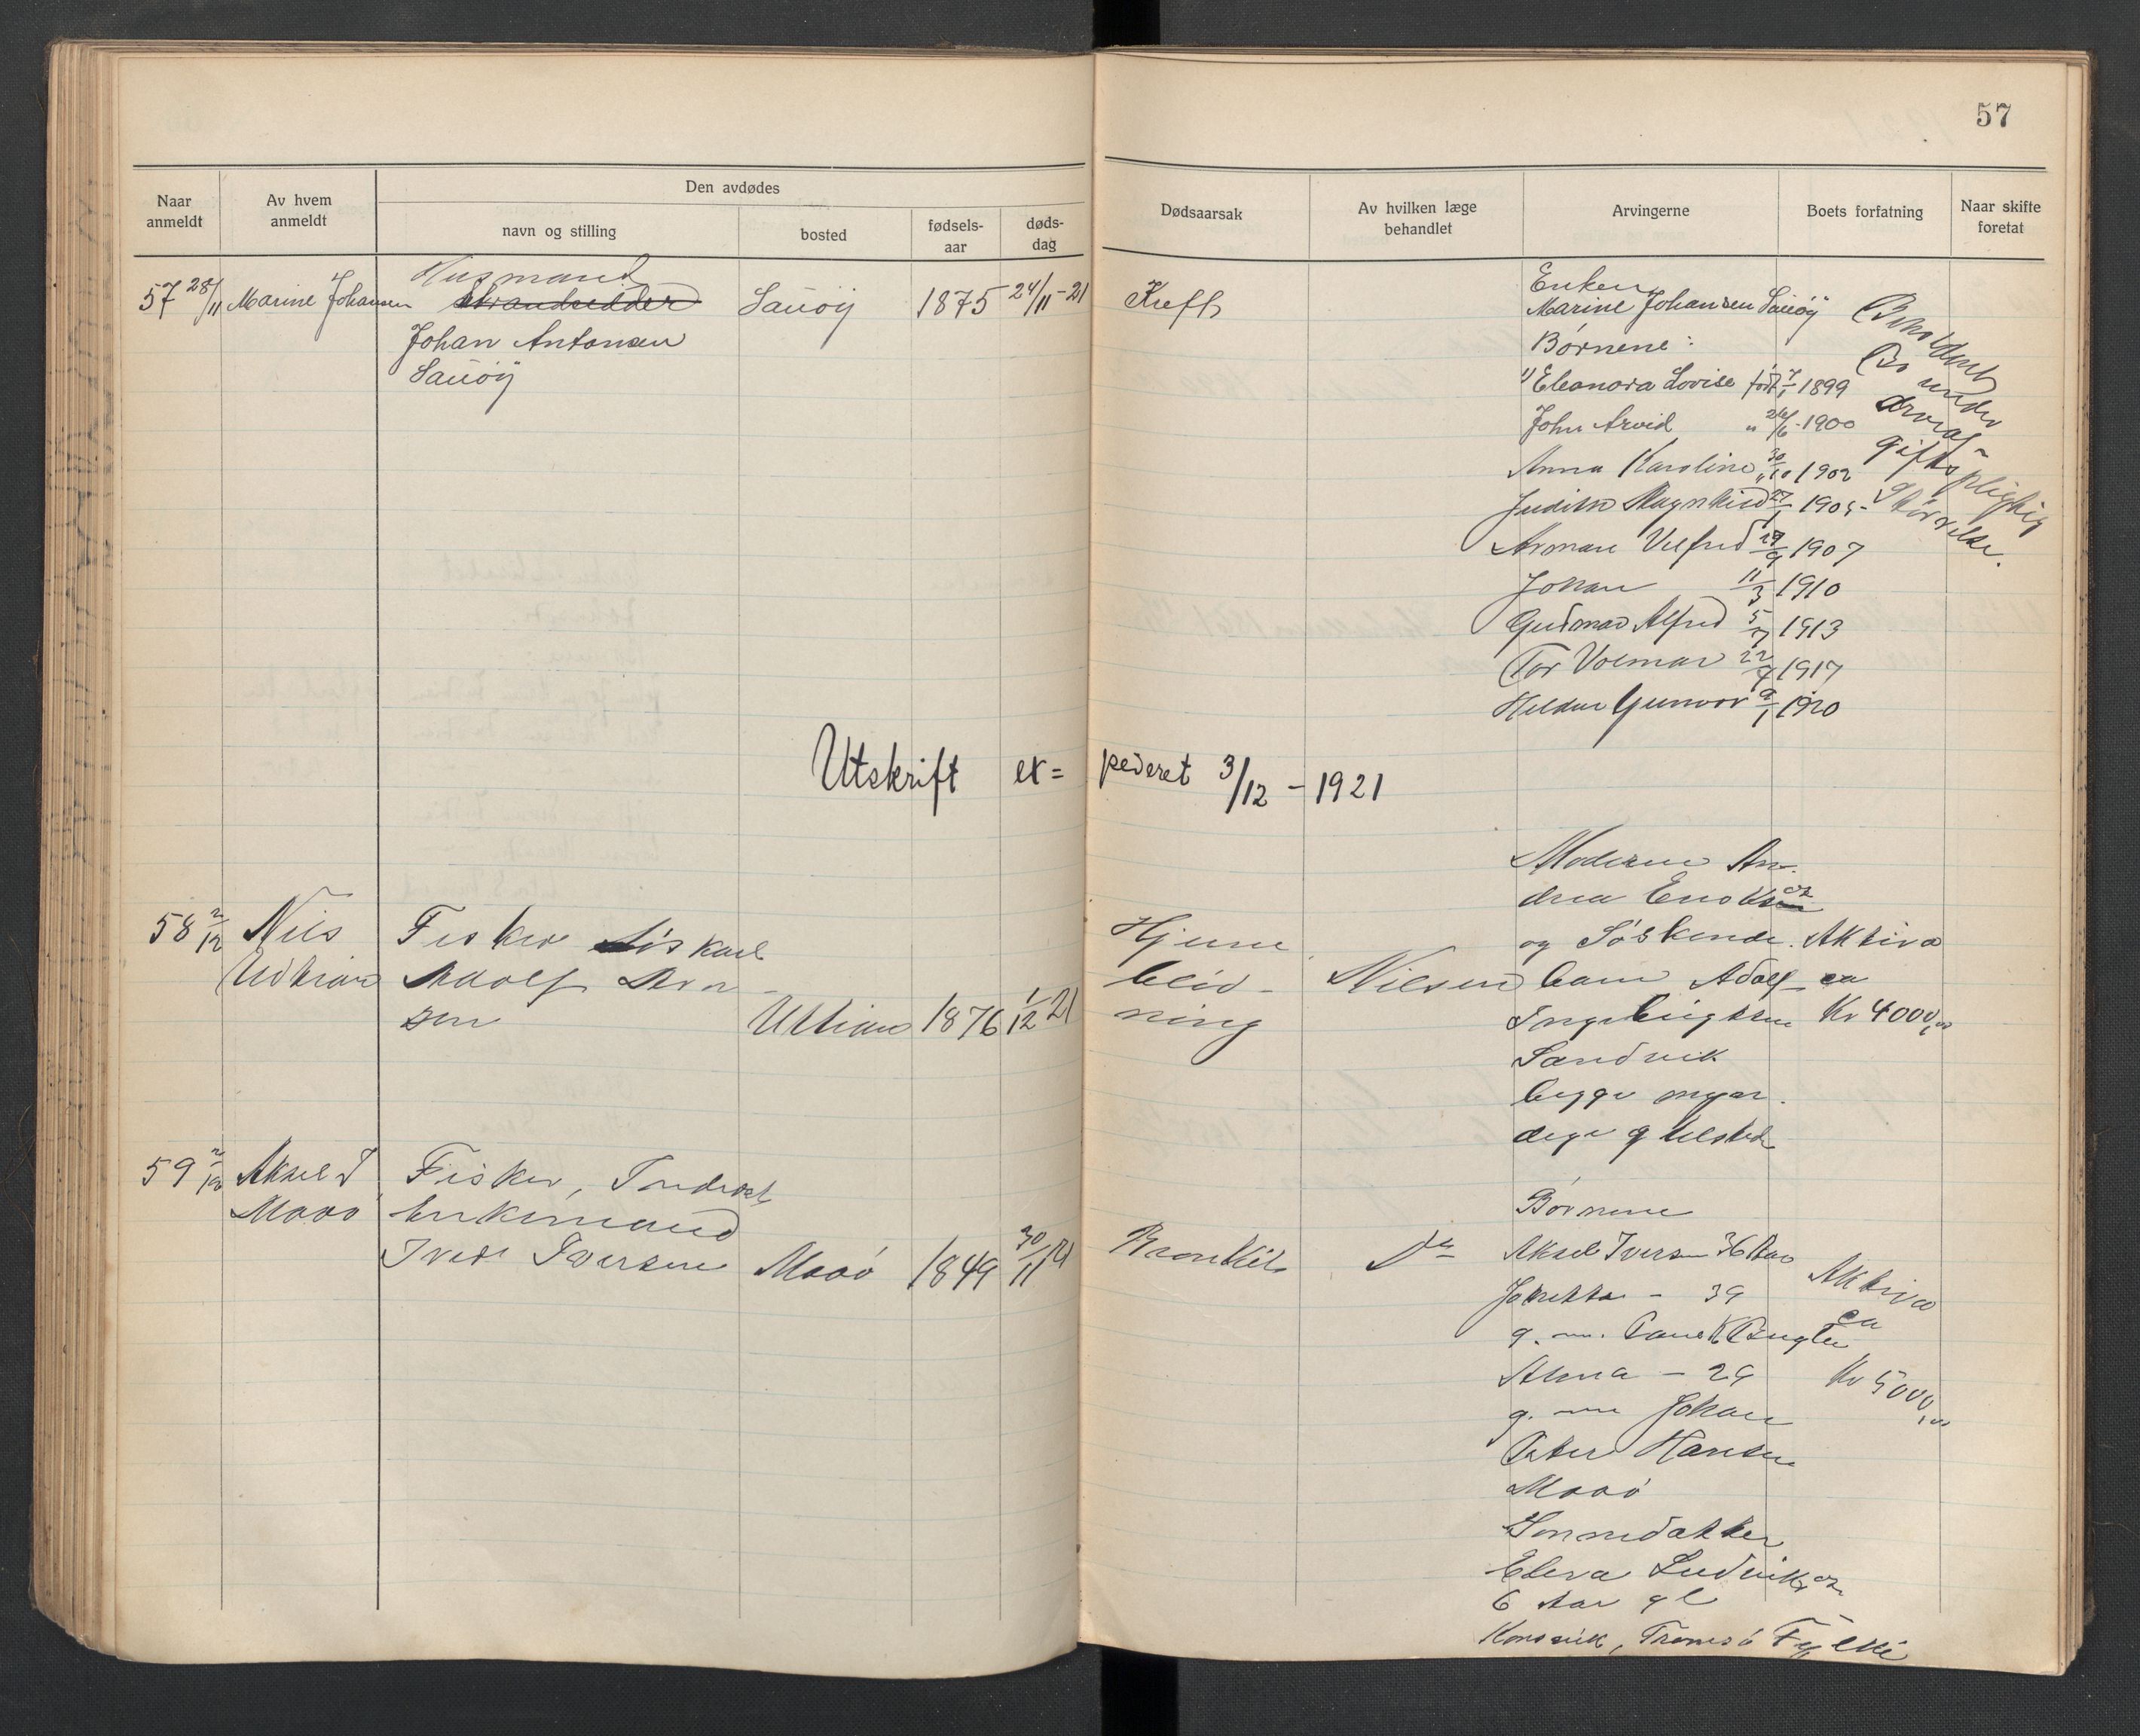 57
Naar anmeldt
Av hvem anmeldt
Den avdødes
navn og stilling
bosted
fødsels-aar
døds-dag
Dødsaarsak
Av hvilken læge behandlet
Arvingerne
Boets forfatning
Naar skifte foretat
57 28/11 Marine Johansen
Husmand
Strandsidder
Johan Antonsen
Sauöy
Sauöy
1875
24/11-21
Kreft
Enken
Marine Johansen Sauöy
Børnene:
1) Eleonora Lovise født 7/1 1899
John Arvid " 26/6-1900
Anna Karoline " 30/10 1902
Judith Magnhild 27/1 1905-
Arman Vilfred 19/9 1907
Johan 11/3 1910
Gudmar Alfred 5/7 1913
Tor Volmar 22/4 1917
Huldur Gunvor 9/1 1920
Beholdent
Bo under
arveaf-
gifts pligtig
størrelse.
Utskrift ex=pederet 3/12-1921
58 2/12
Nils
Utvian
Fisker
Adolf Arn-
sen
1876
1/12 21
Hjerne
blød-
ning
Nilsen
Moderen An-
drea Enoksen
og Søskende
barn Adolf
Ingebrigtsen
Sandvik
begge myn-
dige og tilstede
Aktiva
ca
Kr 4000,00
59 2/12
Aksel I
Maaø
Fisker, Inderst
Enkemand
Iver Iversen
Maaø
1849
30/11 21
Bronkit
Do
Børnene
Aksel Iversen 36 Aar
- 39
g. m.
Alma - 29
g. m Johan
Peter Hansen
Maaø
Sønnedatter
Ludviksen
6 Aar gl
Tromsø Fylke
Aktiva
ca
Kr 5000,00